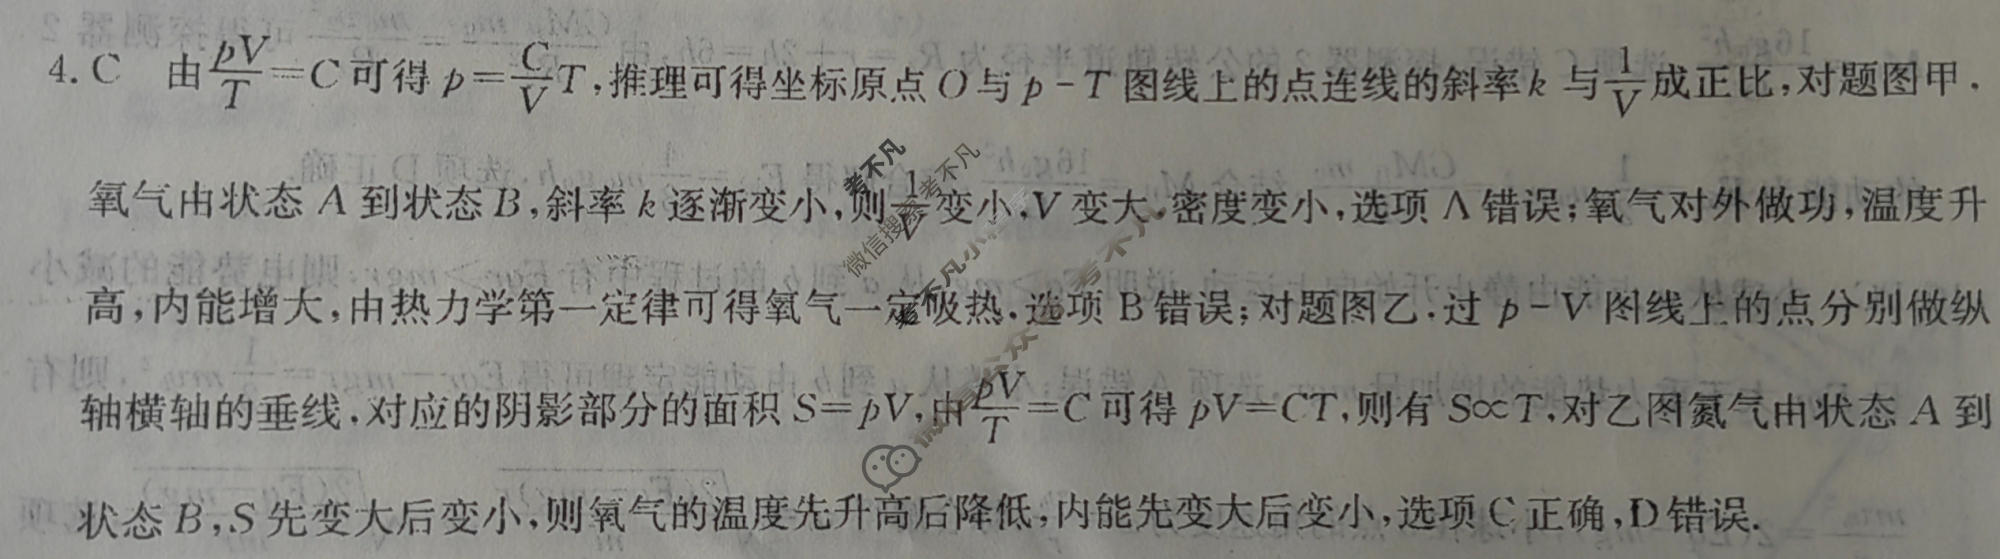 4. C 由pV/T=C可得 p=C/V T,推理可得坐标原点O与p-T图线上的点连线的斜率k与1/V成正比,对题图甲.
氧气由状态A到状态B,斜率k逐渐变小,则1/V变小,V变大,密度变小,选项A错误;氧气对外做功,温度升
高,内能增大,由热力学第一定律可得氧气一定吸热.选项B错误;对题图乙.过p-V图线上的点分别做纵
轴横轴的垂线,对应的阴影部分的面积S=pV,由pV/T=C可得pV=CT,则有S∝T,对乙图氮气由状态A到
状态B,S先变大后变小,则氧气的温度先升高后降低,内能先变大后变小,选项C正确,D错误.
考不凡
微信搜索